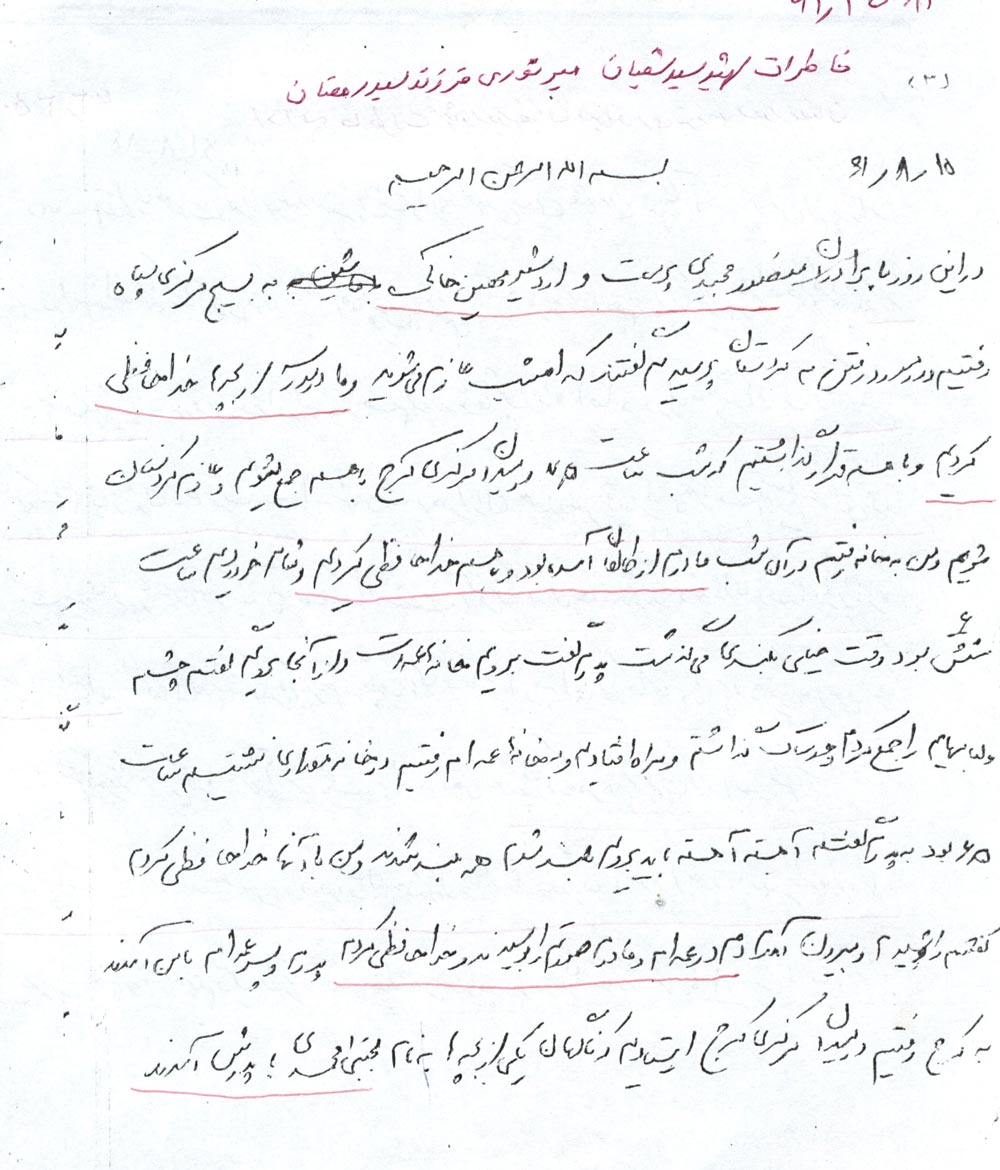 (۳)
خاطرات شهید سید شعبان میر نوری فرزند سید رمضان
بسم الله الرحمن الرحیم
۶۱٫۸٫۱۵
در این روز با برادران منصور مجیدی پرست و اردشیر معین خاکی به بسیج مرکزی سپاه
رفتیم و در مورد رفتن به کردستان پرسیدیم گفتند که امشب عازم می‌شوید و ما دیگر از بچه‌ها خداحافظی
کردیم و با هم قرار گذاشتیم که شب ساعت در میدان مرکزی کرج با هم جمع بشویم و عازم کردستان
شویم و من به خانه رفتم در آن شب مادرم از طالقان آمده بود و با هم خداحافظی کردیم و شام خوردیم ساعت
شش بود وقت خیلی بکندی می‌گذشت پدرم گفت برویم خانه عمه‌ات و از آنجا برویم گفتم چشم
لباسهایم را جمع کردم در ساک گذاشتم و براه افتادیم و به خانه عمه ام رفتیم در خانه مقداری نشستیم ساعت
۶٫۵ بود به پدرم گفتم آهسته آهسته باید برویم بلند شدم همه بلند شدند و من با آنها خداحافظی کردم
کفشم را پوشیدم و بیرون آمدم عمه ام و مادرم صورتم را بوسیدند و خداحافظی کردم پدرم و پسر عمه ام با من آمدند
به کرج رفتیم در میدان مرکزی کرج ایستادیم که ناگهان یکی از بچه ها به نام مجتبی محمدی با پدرش آمدند